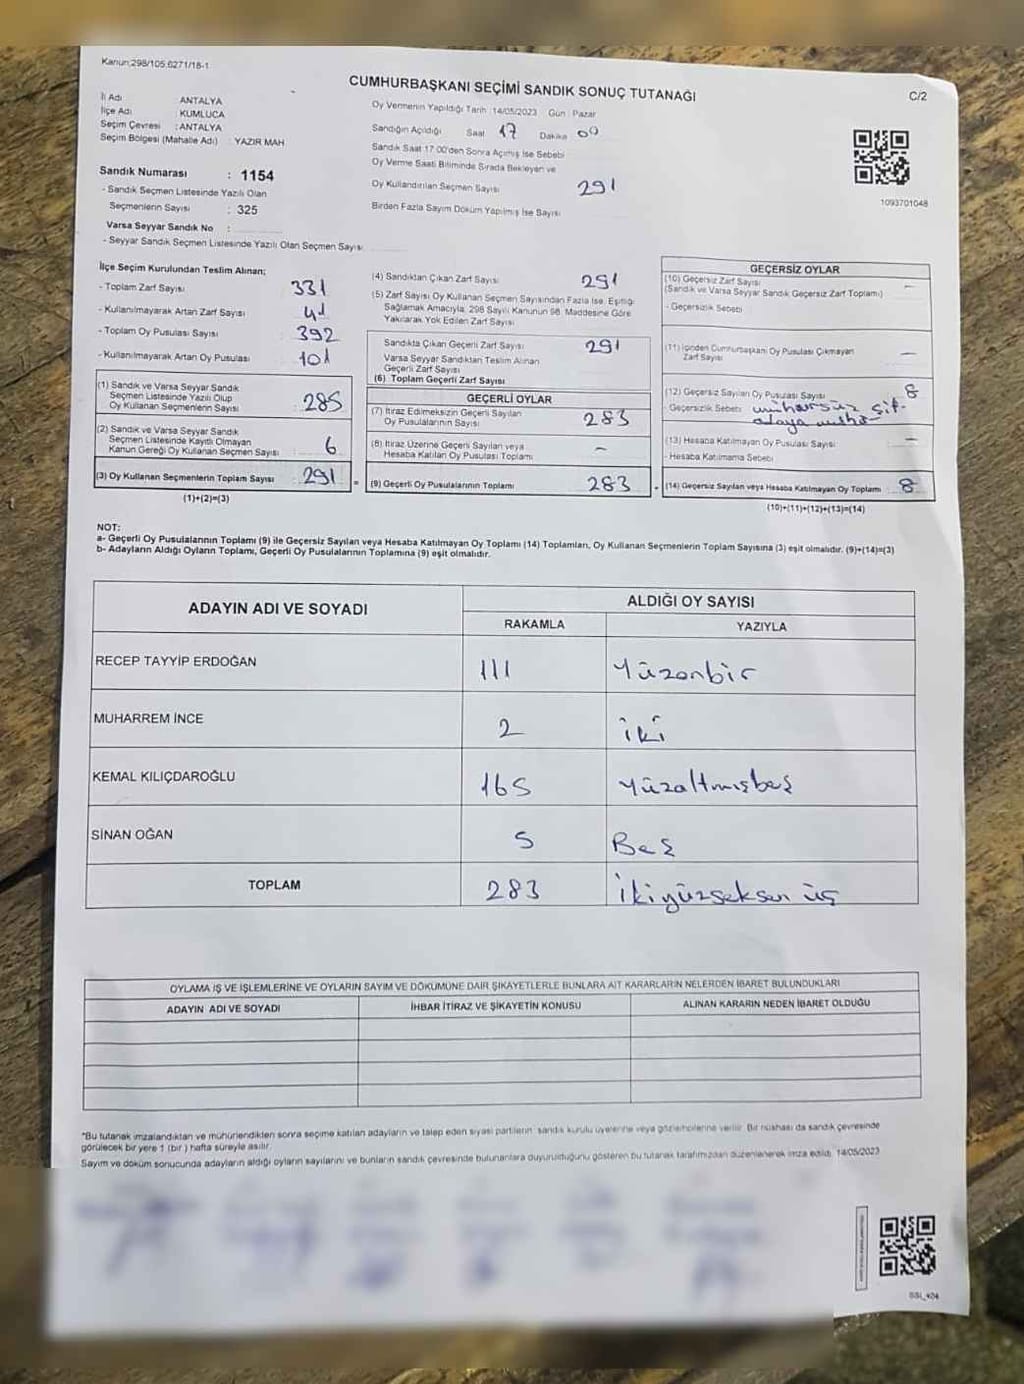 Kanun:298/105.6271/18-1
CUMHURBAŞKANI SEÇİMİ SANDIK SONUÇ TUTANAĞI
C/2
İl Adı ANTALYA
İlçe Adı : KUMLUCA
Seçim Çevresi : ANTALYA
Seçim Bölgesi (Mahalle Adı) : YAZIR MAH
Sandık Numarası : 1154
- Sandık Seçmen Listesinde Yazılı Olan
Seçmenlerin Sayısı : 325
Varsa Seyyar Sandık No :
- Seyyar Sandık Seçmen Listesinde Yazılı Olan Seçmen Sayısı
Oy Vermenin Yapıldığı Tarih :14/05/2023 Gün : Pazar
Sandığın Açıldığı Saat 17 Dakika 00
Sandık Saat 17.00'den Sonra Açımış İse Sebebi
Oy Verme Saati Bitiminde Sırada Bekleyen ve
Oy Kullandırılan Seçmen Sayısı 291
Birden Fazla Sayım Döküm Yapılmış İse Sayısı
1093701048
İlçe Seçim Kurulundan Teslim Alınan;
- Toplam Zarf Sayısı 331
- Kullanılmayarak Artan Zarf Sayısı 41
- Toplam Oy Pusulası Sayısı 392
- Kullanılmayarak Artan Oy Pusulası 101
(1) Sandık ve Varsa Seyyar Sandık
Seçmen Listesinde Yazılı Olup
Oy Kullanan Seçmenlerin Sayısı 285
(2) Sandık ve Varsa Seyyar Sandık
Seçmen Listesinde Kayıtlı Olmayan
Kanun Gereği Oy Kullanan Seçmen Sayısı 6
(3) Oy Kullanan Seçmenlerin Toplam Sayısı 291 =
(1)+(2)=(3)
(4) Sandıktan Çıkan Zarf Sayısı 291
(5) Zarf Sayısı Oy Kullanan Seçmen Sayısından Fazla İse, Eşitliği
Sağlamak Amacıyla, 298 Sayılı Kanunun 98. Maddesine Göre
Yakılarak Yok Edilen Zarf Sayısı
Sandıkta Çıkan Geçerli Zarf Sayısı 291
Varsa Seyyar Sandıktan Teslim Alınan
Geçerli Zarf Sayısı
(6) Toplam Geçerli Zarf Sayısı
GEÇERLİ OYLAR
(7) İtiraz Edilmeksizin Geçerli Sayılan
Oy Pusulalarının Sayısı 283
(8) İtiraz Üzerine Geçerli Sayılan veya
Hesaba Katılan Oy Pusulası Toplamı –
(9) Geçerli Oy Pusulalarının Toplamı 283
GEÇERSİZ OYLAR
(10) Geçersiz Zarf Sayısı –
(Sandık ve Varsa Seyyar Sandık Geçersiz Zarf Toplamı)
- Geçersizlik Sebebi
(11) İçinden Cumhurbaşkanı Oy Pusulası Çıkmayan
Zarf Sayısı –
(12) Geçersiz Sayılan Oy Pusulası Sayısı 8
- Geçersizlik Sebebi
(13) Hesaba Katılmayan Oy Pusulası Sayısı –
- Hesaba Katılmama Sebebi
(14) Geçersiz Sayılan veya Hesaba Katılmayan Oy Toplamı 8
(10)+(11)+(12)+(13)=(14)
NOT:
a- Geçerli Oy Pusulalarının Toplamı (9) ile Geçersiz Sayılan veya Hesaba Katılmayan Oy Toplamı (14) Toplamları, Oy Kullanan Seçmenlerin Toplam Sayısına (3) eşit olmalıdır. (9)+(14)=(3)
b- Adayların Aldığı Oyların Toplamı, Geçerli Oy Pusulalarının Toplamına (9) eşit olmalıdır.
ADAYIN ADI VE SOYADI
ALDIĞI OY SAYISI
RAKAMLA YAZIYLA
RECEP TAYYİP ERDOĞAN 111 Yüzonbir
MUHARREM İNCE 2 iki
KEMAL KILIÇDAROĞLU 165 yüzaltmışbeş
SİNAN OĞAN 5 Beş
TOPLAM 283 İkiyüzseksen üç
OYLAMA İŞ VE İŞLEMLERİNE VE OYLARIN SAYIM VE DÖKÜMÜNE DAİR ŞİKAYETLERLE BUNLARA AİT KARARLARIN NELERDEN İBARET BULUNDUKLARI
ADAYIN ADI VE SOYADI İHBAR İTİRAZ VE ŞİKAYETİN KONUSU ALINAN KARARIN NEDEN İBARET OLDUĞU
*Bu tutanak imzalandıktan ve mühürlendikten sonra seçime katılan adayların ve talep eden siyasi partilerin sandık kurulu üyelerine veya gözlemcilerine verilir. Bir nüshası da sandık çevresinde
görülecek bir yere 1 (bir ) hafta süreyle asılır.
Sayım ve döküm sonucunda adayların aldığı oyların sayılarını ve bunların sandık çevresinde bulunanlara duyurulduğunu gösteren bu tutanak tarafımızdan düzenlenerek imza edildi. 14/05/2023